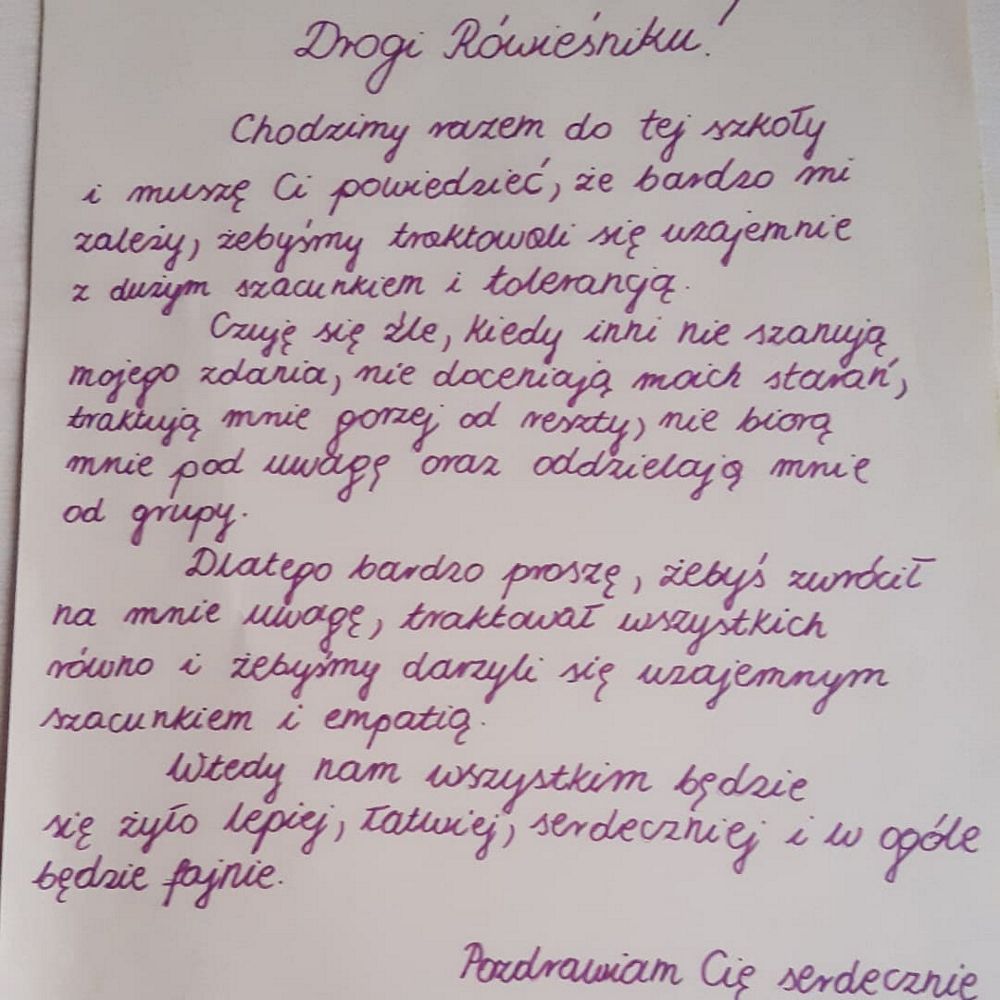 Drogi Rówieśniku!
Chodzimy razem do tej szkoły
i muszę Ci powiedzieć, że bardzo mi
zależy, żebyśmy traktowali się wzajemnie
z dużym szacunkiem i tolerancją.
Czuję się źle, kiedy inni nie szanują
mojego zdania, nie doceniają moich starań,
traktują mnie gorzej od reszty, nie biorą
mnie pod uwagę oraz oddzielają mnie
od grupy.
Dlatego bardzo proszę, żebyś zwrócił
na mnie uwagę, traktował wszystkich
równo i żebyśmy darzyli się wzajemnym
szacunkiem i empatią.
Wtedy nam wszystkim będzie
się żyło lepiej, łatwiej, serdeczniej i w ogóle
będzie fajnie.
Pozdrawiam Cię serdecznie